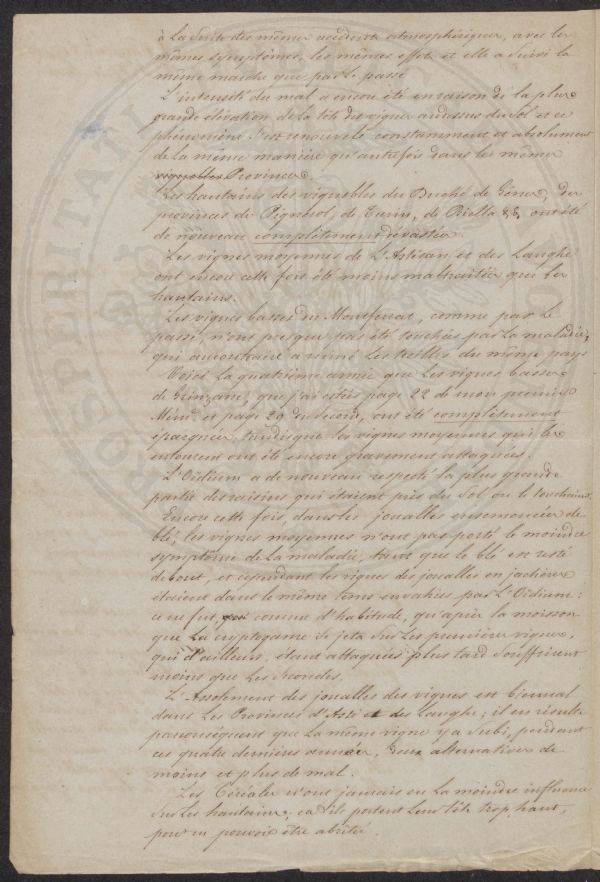 à la suite des mêmes accidents atmosphériques, avec les
mêmes symptômes, les mêmes effets et elle a suivi la
même marche que par le passé.
L'intensité du mal a encore été en raison de la plus
grande élévation de la tête des vignes audessus du Sol et ce
phénomène s'est renouvelé constamment et absolument
de la même manière qu'autrefois dans les mêmes
vignobles Provinces.
Les hautains des vignobles du Duché de Gênes, des
provinces de Pignerol, de Turin, de Biella &&, ont été
de nouveau complètement dévastés.
Les vignes moyennes de L'Artésan et des Langhe
ont encore cette fois été moins maltraitées que les
hautains.
Les vignes basses du Montferrat, comme par le
passé, n'ont presque pas été touchées par la maladie,
qui aucontraire a ruiné les treilles du même pays
Voici la quatrième année que les vignes basses
de Grinzane, que j'ai citées page 22 de mon premier
Mém. et page 29 du Second, ont été complètement
épargnées, tandisque les vignes moyennes qui les
entourent ont été encore gravement attaquées.
L'Oïdium a de nouveau respecté la plus grande
partie des raisins qui étaient près du Sol ou le touchaient.
Encore cette fois, dans les joualles ensemencées de
blé, les vignes moyennes n'ont pas porté le moindre
symptôme de la maladie, tant que le blé est resté
debout, et cependant les vignes des joualles en jachères
étaient dans le même tems envahies par L'Oïdium:
ce ne fut, comme d'habitude, qu'après la moisson
que la cryptogame se jeta sur les premières vignes,
qui d'ailleurs, étant attaquées plus tard souffrirent
moins que les secondes.
L'Assolement des joualles des vignes est biennal
dans les Provinces d'Asti et des Langhe; il en résulte
parconséquent que la même vigne y a subi, pendant
ces quatre dernières années, deux alternatives de
moins et plus de mal.
Les Céréales n'ont jamais eu la moindre influence
sur les hautains; ca ils portent leur tête trop haut,
pour en pouvoir être abrités.